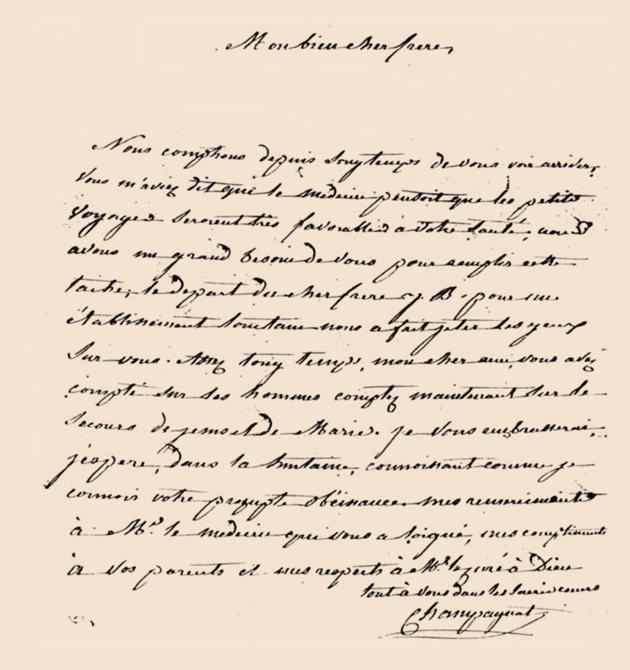 Mon bien cher frere,
Nous comptons depuis longtemps de vous voir arriver,
vous m'aviez dit que le medecin pensoit que les petits
voyages seroient très favorables à votre santé, nous
avons un grand besoin de vous pour remplir cette
tache, le depart du cher frere J. B. pour un
établissement lointain nous a fait jeter les yeux
sur vous. Assez long temps, mon cher ami, vous avez
compté sur les hommes comptez maintenant sur le
secours de Jesus et de Marie. je vous embrasserai,
j'espere, dans la huitaine, connoissant comme je
connois votre prompte obéissance. mes remerciments
à Mr. le medecin qui vous a soigné, mes compliments
à vos parents et mes respects à Mr. le curé à Dieu
tout à vous dans les sacrés coeurs
Champagnat